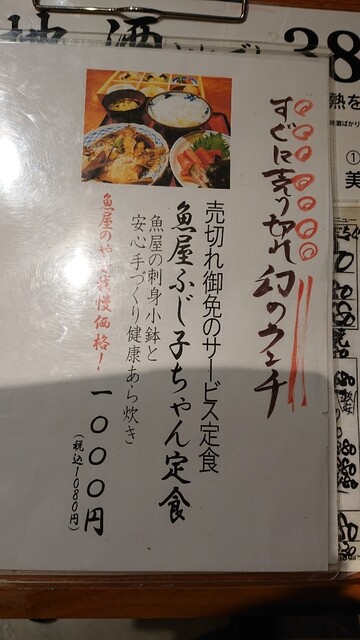 すぐに売り切れ 幻のランチ
売切れ御免のサービス定食
魚屋ふじ子ちゃん定食
魚屋の刺身小鉢と
安心手づくり健康あら炊き
魚屋のやせ我慢価格!
一〇〇〇円
(税込1080円)
地酒
38
熱を
①
美